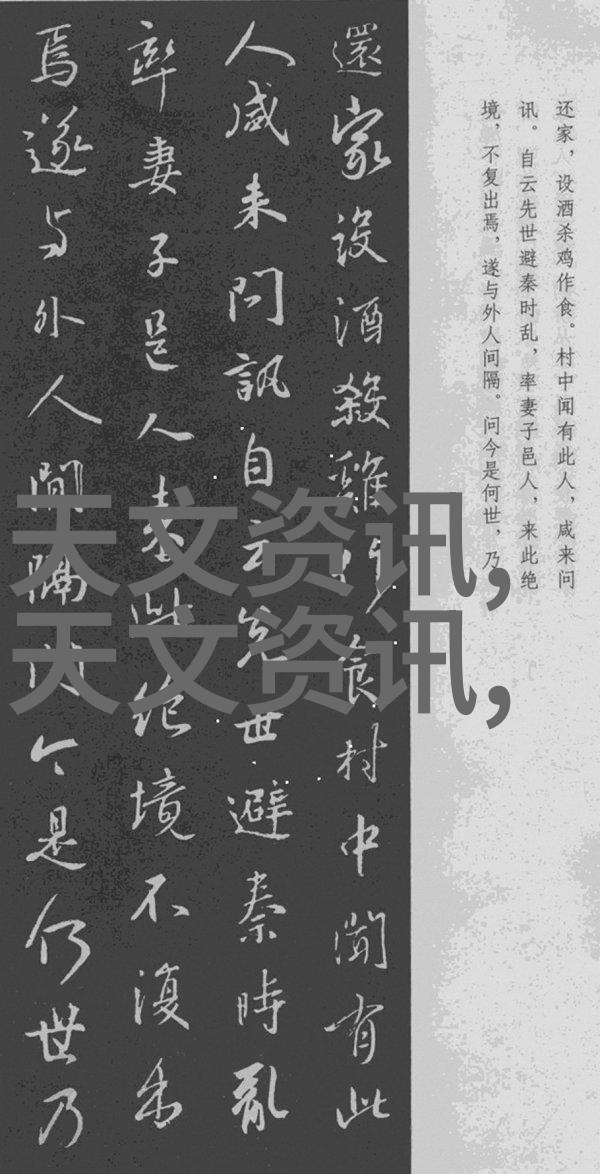 还家，设酒杀鸡作食。村中闻有此人，咸来问
讯。自云先世避秦时乱，率妻子邑人，来此绝
境，不复出焉，遂与外人间隔。问今是何世，乃
還家設酒殺雞作食村中聞有此
人咸来問訊自云先世避秦時亂
率妻子邑人来此絕境不復出
焉遂与外人間隔問今是何世乃
天文资讯，
天文资讯，